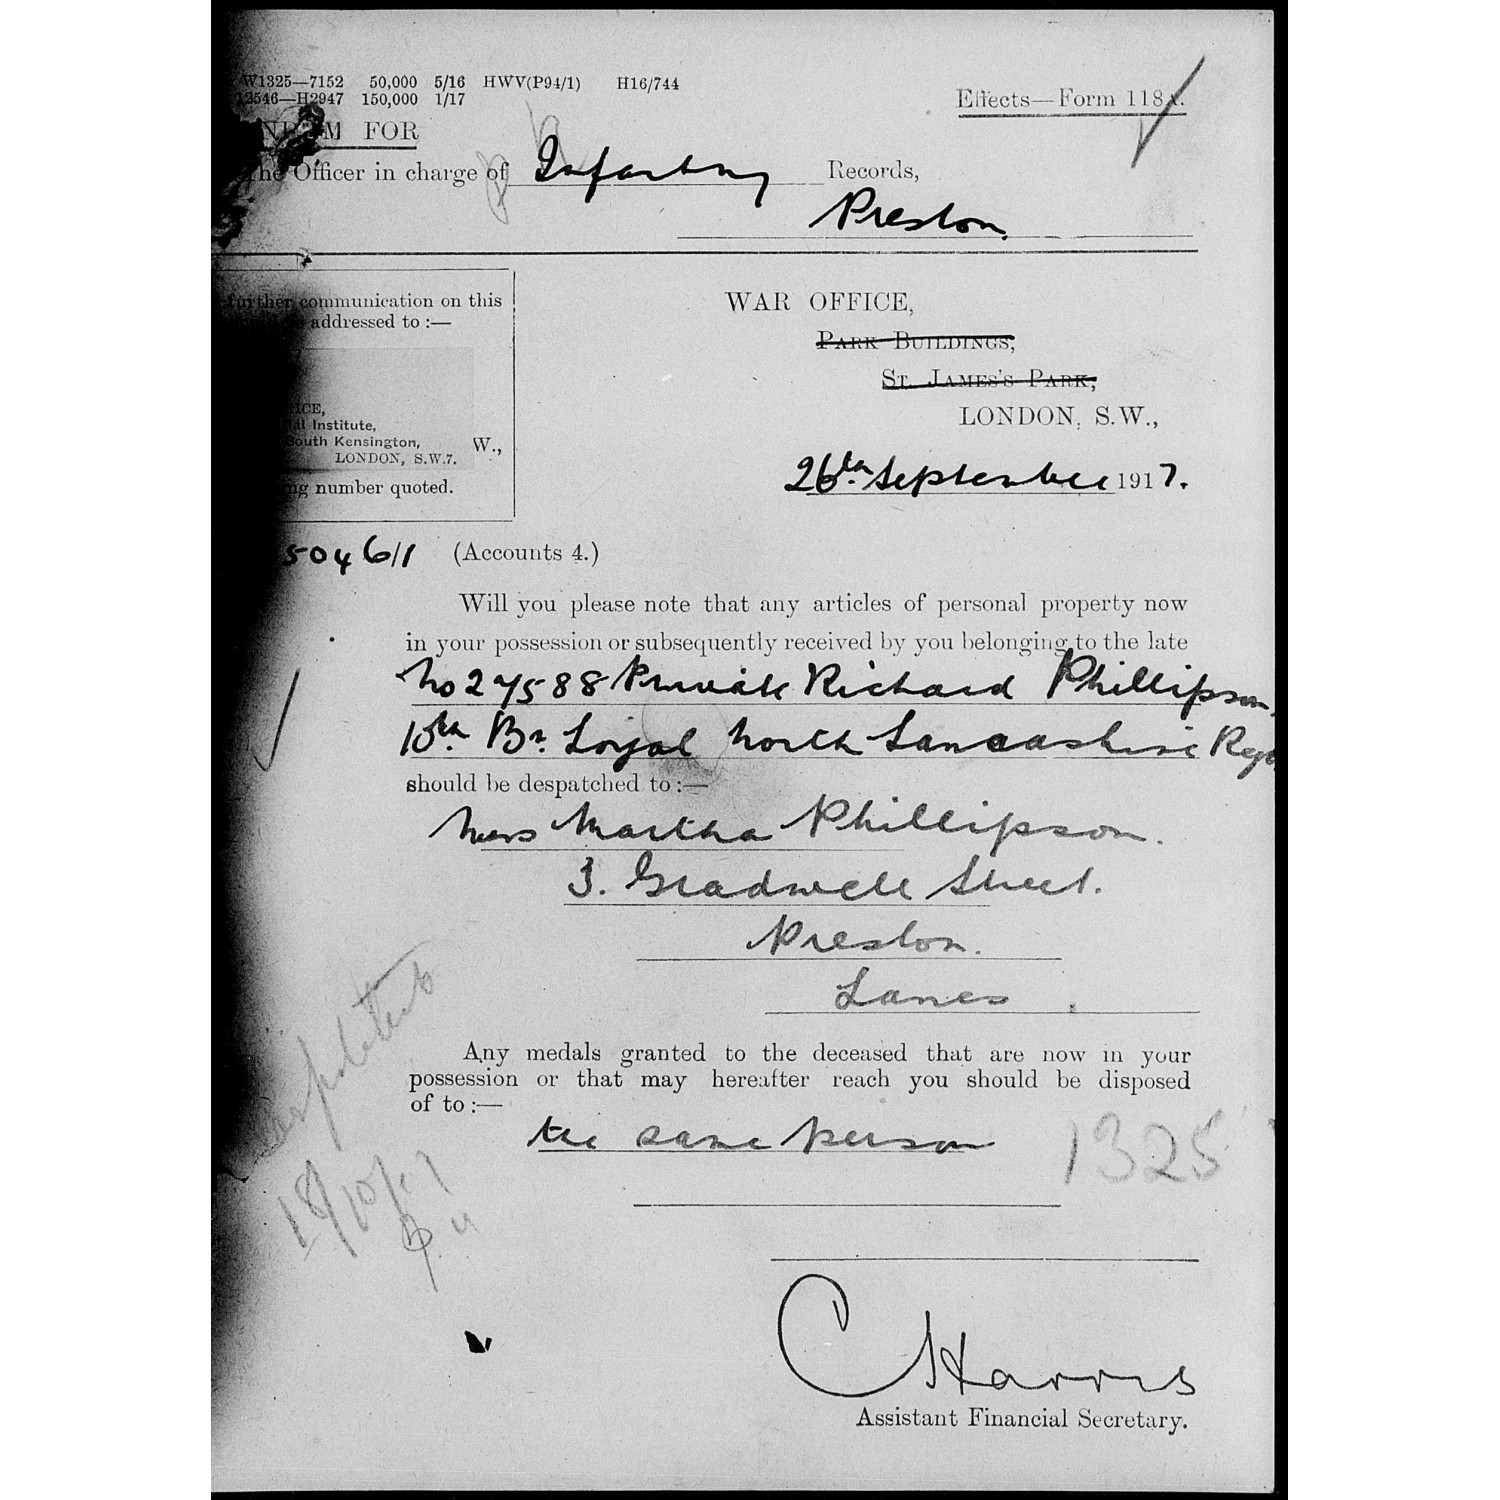 W1325—7152 50,000 5/16 HWV(P94/1) H16/744
12546—H2947 150,000 1/17
Effects—Form 118A.
M FOR
The Officer in charge of Infantry Records,
Preston.
further communication on this
addressed to :—
ICE,
al Institute,
South Kensington, W.,
LONDON, S.W.7.
ng number quoted.
WAR OFFICE,
PARK BUILDINGS,
ST. JAMES'S PARK,
LONDON, S.W.,
26th September 1917.
5046/1 (Accounts 4.)
Will you please note that any articles of personal property now
in your possession or subsequently received by you belonging to the late
No 27588 Private Richard Phillipson,
10th Bn. Loyal North Lancashire Regt
should be despatched to :—
Mrs Martha Phillipson.
3. Gradwell Street.
Preston.
Lancs
Any medals granted to the deceased that are now in your
possession or that may hereafter reach you should be disposed
of to :—
the same person
1325
18/10/17
C Harris
Assistant Financial Secretary.